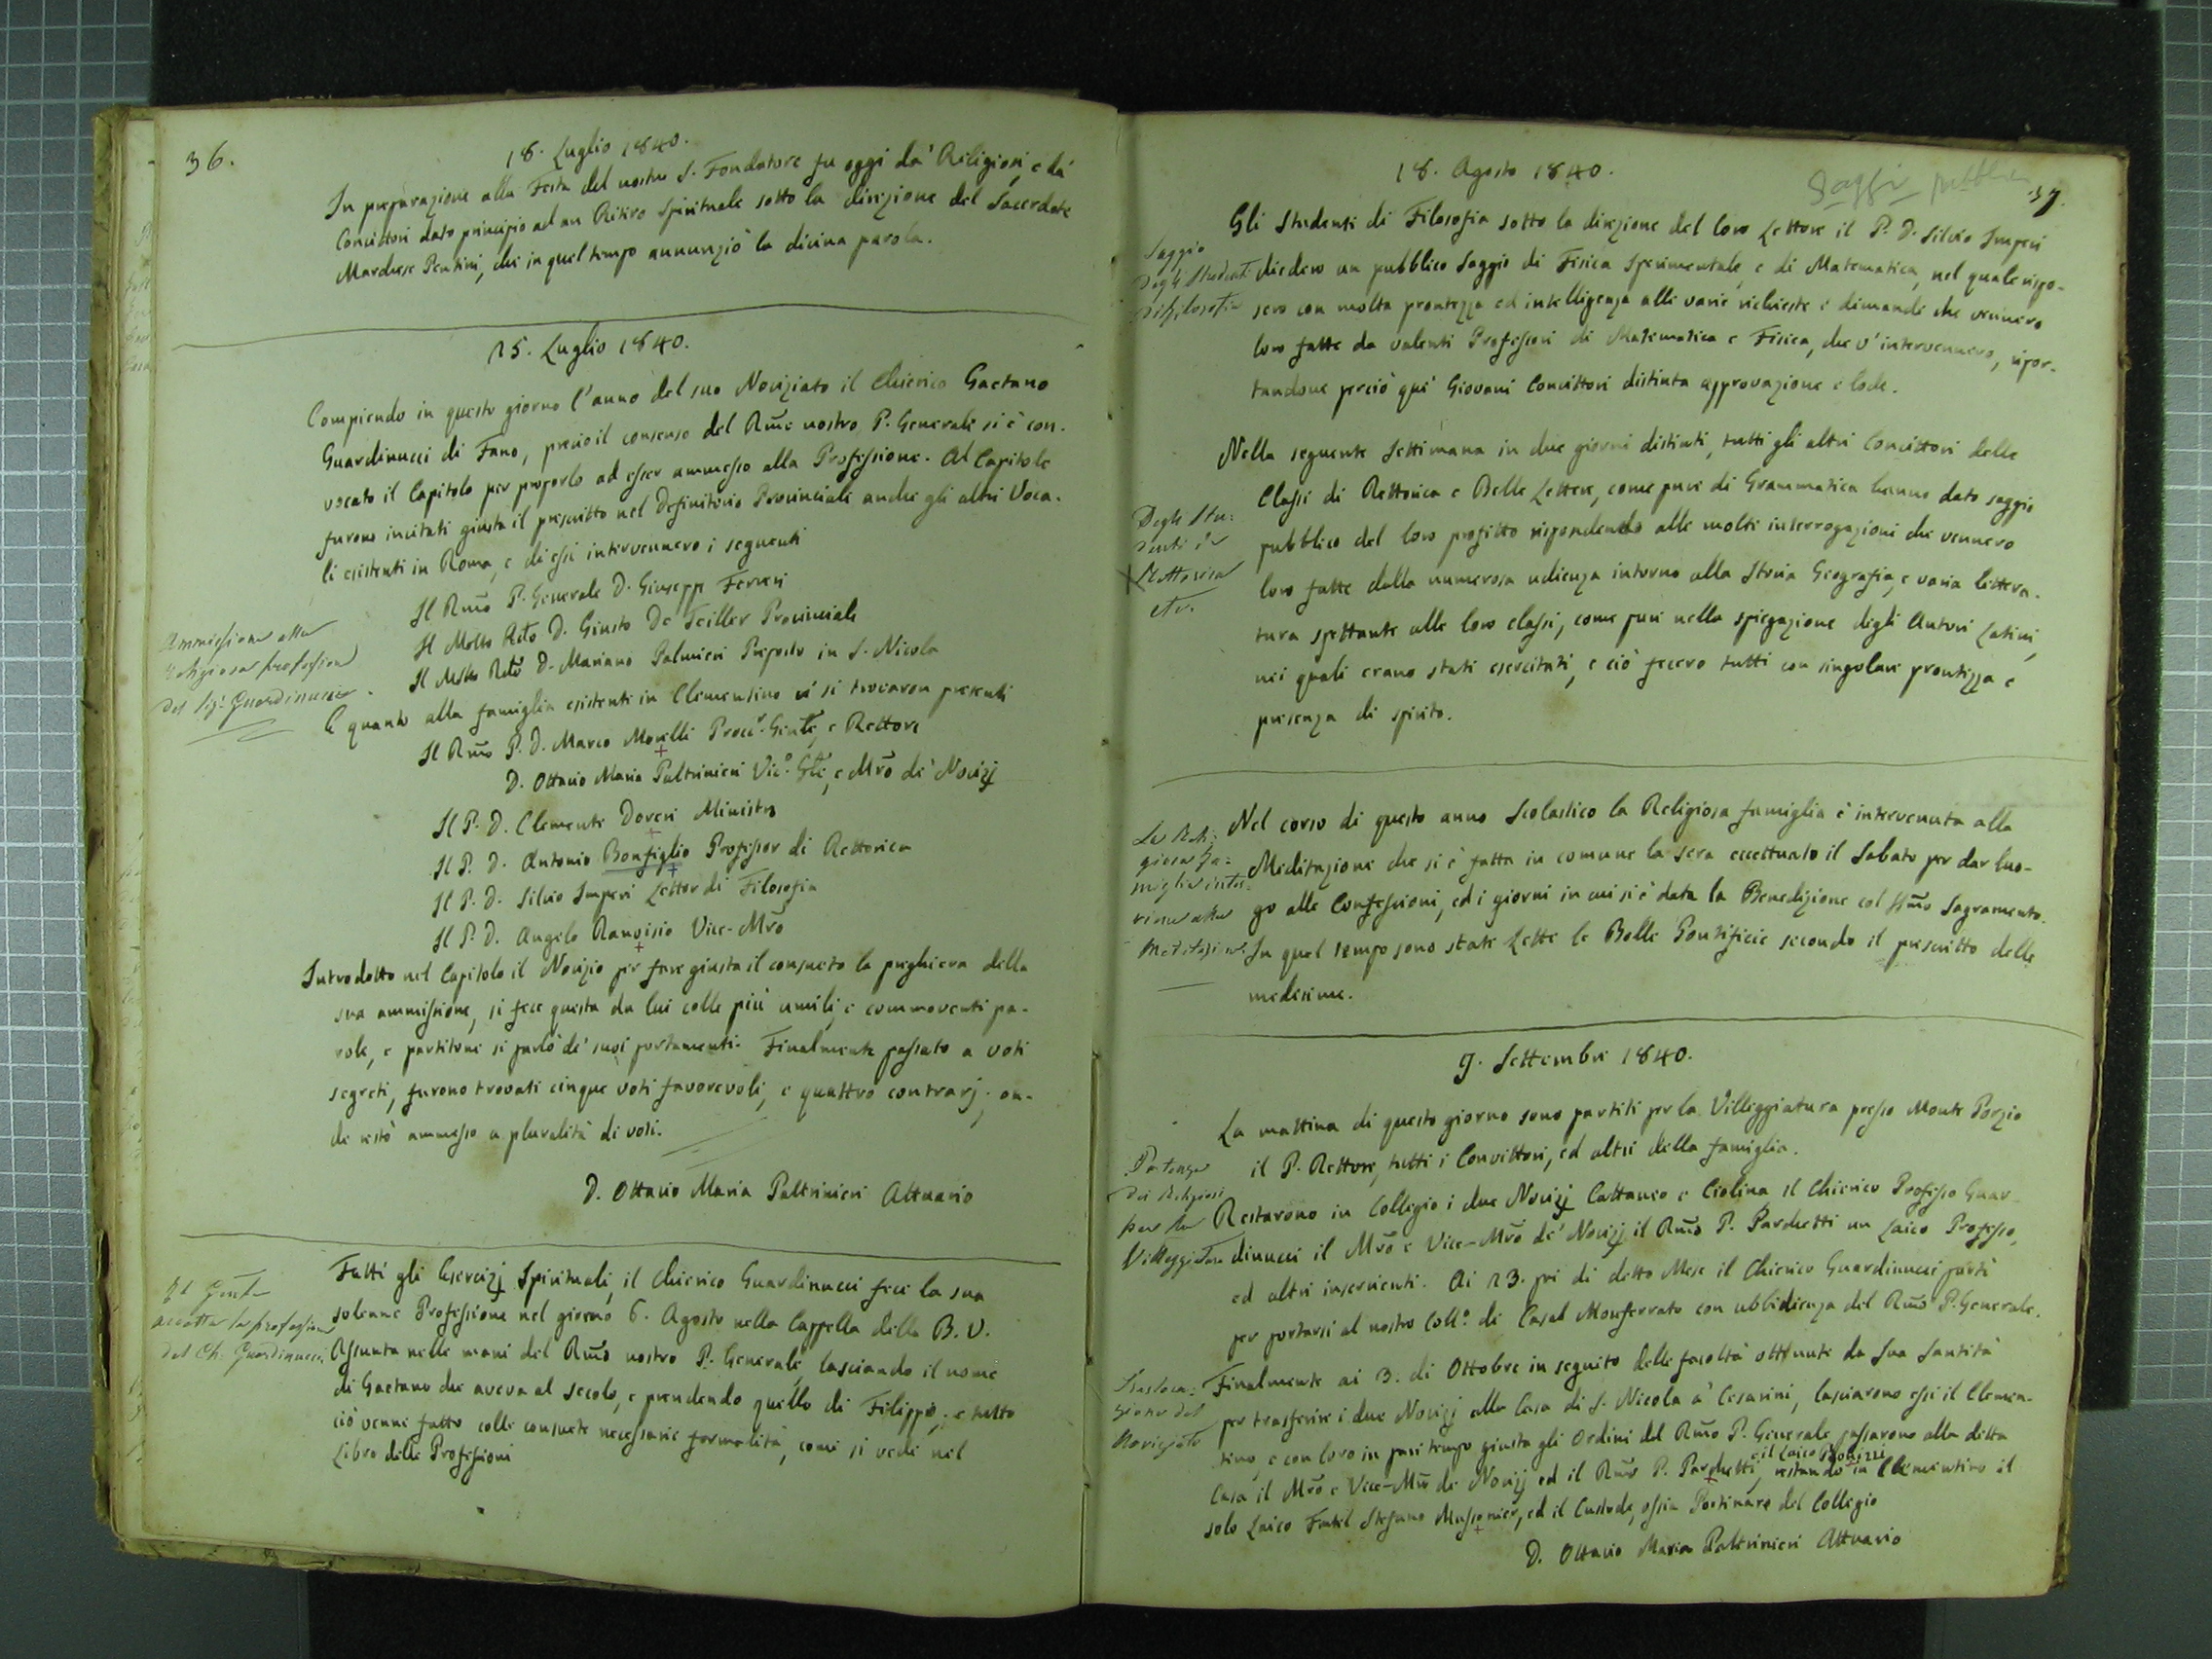 36.
18. Luglio 1840.
In preparazione alla Festa del nostro S. Fondatore fu oggi da' Religiosi, e da'
Convittori dato principio ad un Ritiro Spirituale sotto la direzione del Sacerdote
Marchese Pentini, che in quel tempo annunziò la divina parola.
25. Luglio 1840.
Compiendo in questo giorno l'anno del suo Noviziato il Chierico Gaetano
Guardinucci di Fano, previo il consenso del Rmo nostro P. Generale si è con-
vocato il Capitolo per proporlo ad esser ammesso alla Professione. Al Capitolo
furono invitati giusta il prescritto nel Definitorio Provinciale anche gli altri Voca-
li esistenti in Roma, e di essi intervennero i seguenti
Il Rmo P. Generale D. Giuseppe Ferreri
Il Molto Rdo D. Giusto De Feiller Provinciale
Il Molto Rdo D. Mariano Palmieri Preposto in S. Nicola
Ammissione alla
religiosa professione
del sig. Guardinucci.
E quanto alla famiglia esistenti in Clementino vi si trovaron presenti
Il Rmo P. D. Marco Morelli Procr. Gnle, e Rettore
D. Ottavio Maria Paltrinieri Vic.o Gle, e Mro de' Novizj
Il P. D. Clemente Doveri Ministro
Il P. D. Antonio Bonfiglio Professor di Rettorica
Il P. D. Silvio Imperi Lettor di Filosofia
Il P. D. Angelo Ranoisio Vice-Mro
Introdotto nel Capitolo il Novizio per fare giusta il consueto la preghiera della
sua ammissione, si fece questa da lui colle più umili, e commoventi pa-
role, e partitone si parlò de' suoi portamenti. Finalmente passato a voti
segreti, furono trovati cinque voti favorevoli, e quattro contrarj; on-
de restò ammesso a pluralità di voti.
D. Ottavio Maria Paltrinieri Attuario
accetta la professione
del Ch. Guardinucci
Fatti gli Esercizj Spirituali, il Chierico Guardinucci fece la sua
solenne Professione nel giorno 6. Agosto nella Cappella della B. V.
Assunta nelle mani del Rmo nostro P. Generale, lasciando il nome
di Gaetano che aveva al secolo, e prendendo quello di Filippo; e tutto
ciò venne fatto colle consuete necessarie formalità, come si vede nel
Libro delle Professioni
Saggi pubblici
37.
18. Agosto 1840.
Saggio
degli Studenti
di filosofia
Gli Studenti di Filosofia sotto la direzione del loro Lettore il P. D. Silvio Imperi
diedero un pubblico Saggio di Fisica Sperimentale, e di Matematica, nel quale rispo-
sero con molta prontezza ed intelligenza alle varie richieste e dimande che vennero
loro fatte da valenti Professori di Matematica e Fisica, che v'intervennero, ripor-
tandone perciò que' Giovani Convittori distinta approvazione e lode.
Nella seguente Settimana in due giorni distinti, tutti gli altri Convittori delle
Classi di Rettorica e Belle Lettere, come pure di Grammatica hanno dato saggio
pubblico del loro profitto rispondendo alle molte interrogazioni che vennero
loro fatte dalla numerosa udienza intorno alla Storia Geografia, e varia lettera-
tura spettante alle loro classi, come pure nella spiegazione degli Autori Latini,
nei quali erano stati esercitati, e ciò fecero tutti con singolare prontezza e
presenza di spirito.
Degli Stu-
denti di
Rettorica
etc.
La Reli-
giosa fa-
miglia inter-
viene alla
Meditazione
Nel corso di questo anno Scolastico la Religiosa famiglia è intervenuta alla
Meditazione che si è fatta in comune la sera eccettuato il Sabato per dar luo-
go alle Confessioni, ed i giorni in cui si è data la Benedizione col SSmo Sagramento.
In quel tempo sono state Lette le Bolle Pontificie secondo il prescritto delle
medesime.
9. Settembre 1840.
La mattina di questo giorno sono partiti per la Villeggiatura presso Monte Porzio
il P. Rettore, tutti i Convittori, ed altri della famiglia.
Partenza
dei Religiosi
per la
Villeggiatura
Restarono in Collegio i due Novizj Cattaneo e Ciolina il Chierico Professo Guar-
dinucci il Mro e Vice-Mro de' Novizj il Rmo P. Parchetti un Laico Professo,
ed altri inservienti. Ai 23. poi di detto Mese il Chierico Guardinucci partì
per portarsi al nostro Coll.o di Casal Monferrato con ubbidienza del Rmo P. Generale.
Trasloca-
zione del
Noviziato
Finalmente ai 3. di Ottobre in seguito delle facoltà ottenute da Sua Santità
per trasferire i due Novizj alla Casa di S. Nicola a' Cesarini, lasciarono essi il Clemen-
tino, e con loro in pari tempo giusta gli Ordini del Rmo P. Generale passarono alla detta
Casa il Mro e Vice-Mro de Novizj ed il Rmo P. Parchetti, e il Laico restando in Clementino il
solo Laico Fratel Stefano Mussonier, ed il Custode, ossia Portinaro del Collegio
D. Ottavio Maria Paltrinieri Attuario